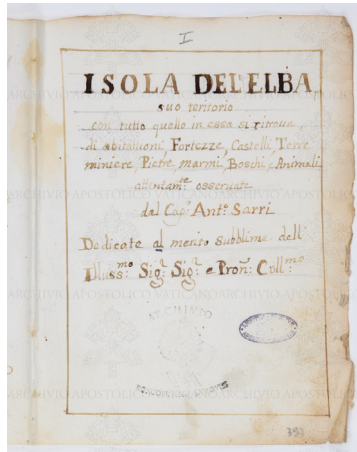 I
ISOLA DEL'ELBA
suo teritorio
con tutto quello in essa si ritroua
di abitationi, Fortezze, Castelli, Terre
miniere, Pietre, marmi, Boschi, e Animali
attentam.te osseruate
dal Cap.o Ant.o Sarri
Dedicate al merito subblime dell'
Illuss.mo Sig.r Sig.r e Pron: Coll.mo
ARCHIVIO APOSTOLICO VATICANO